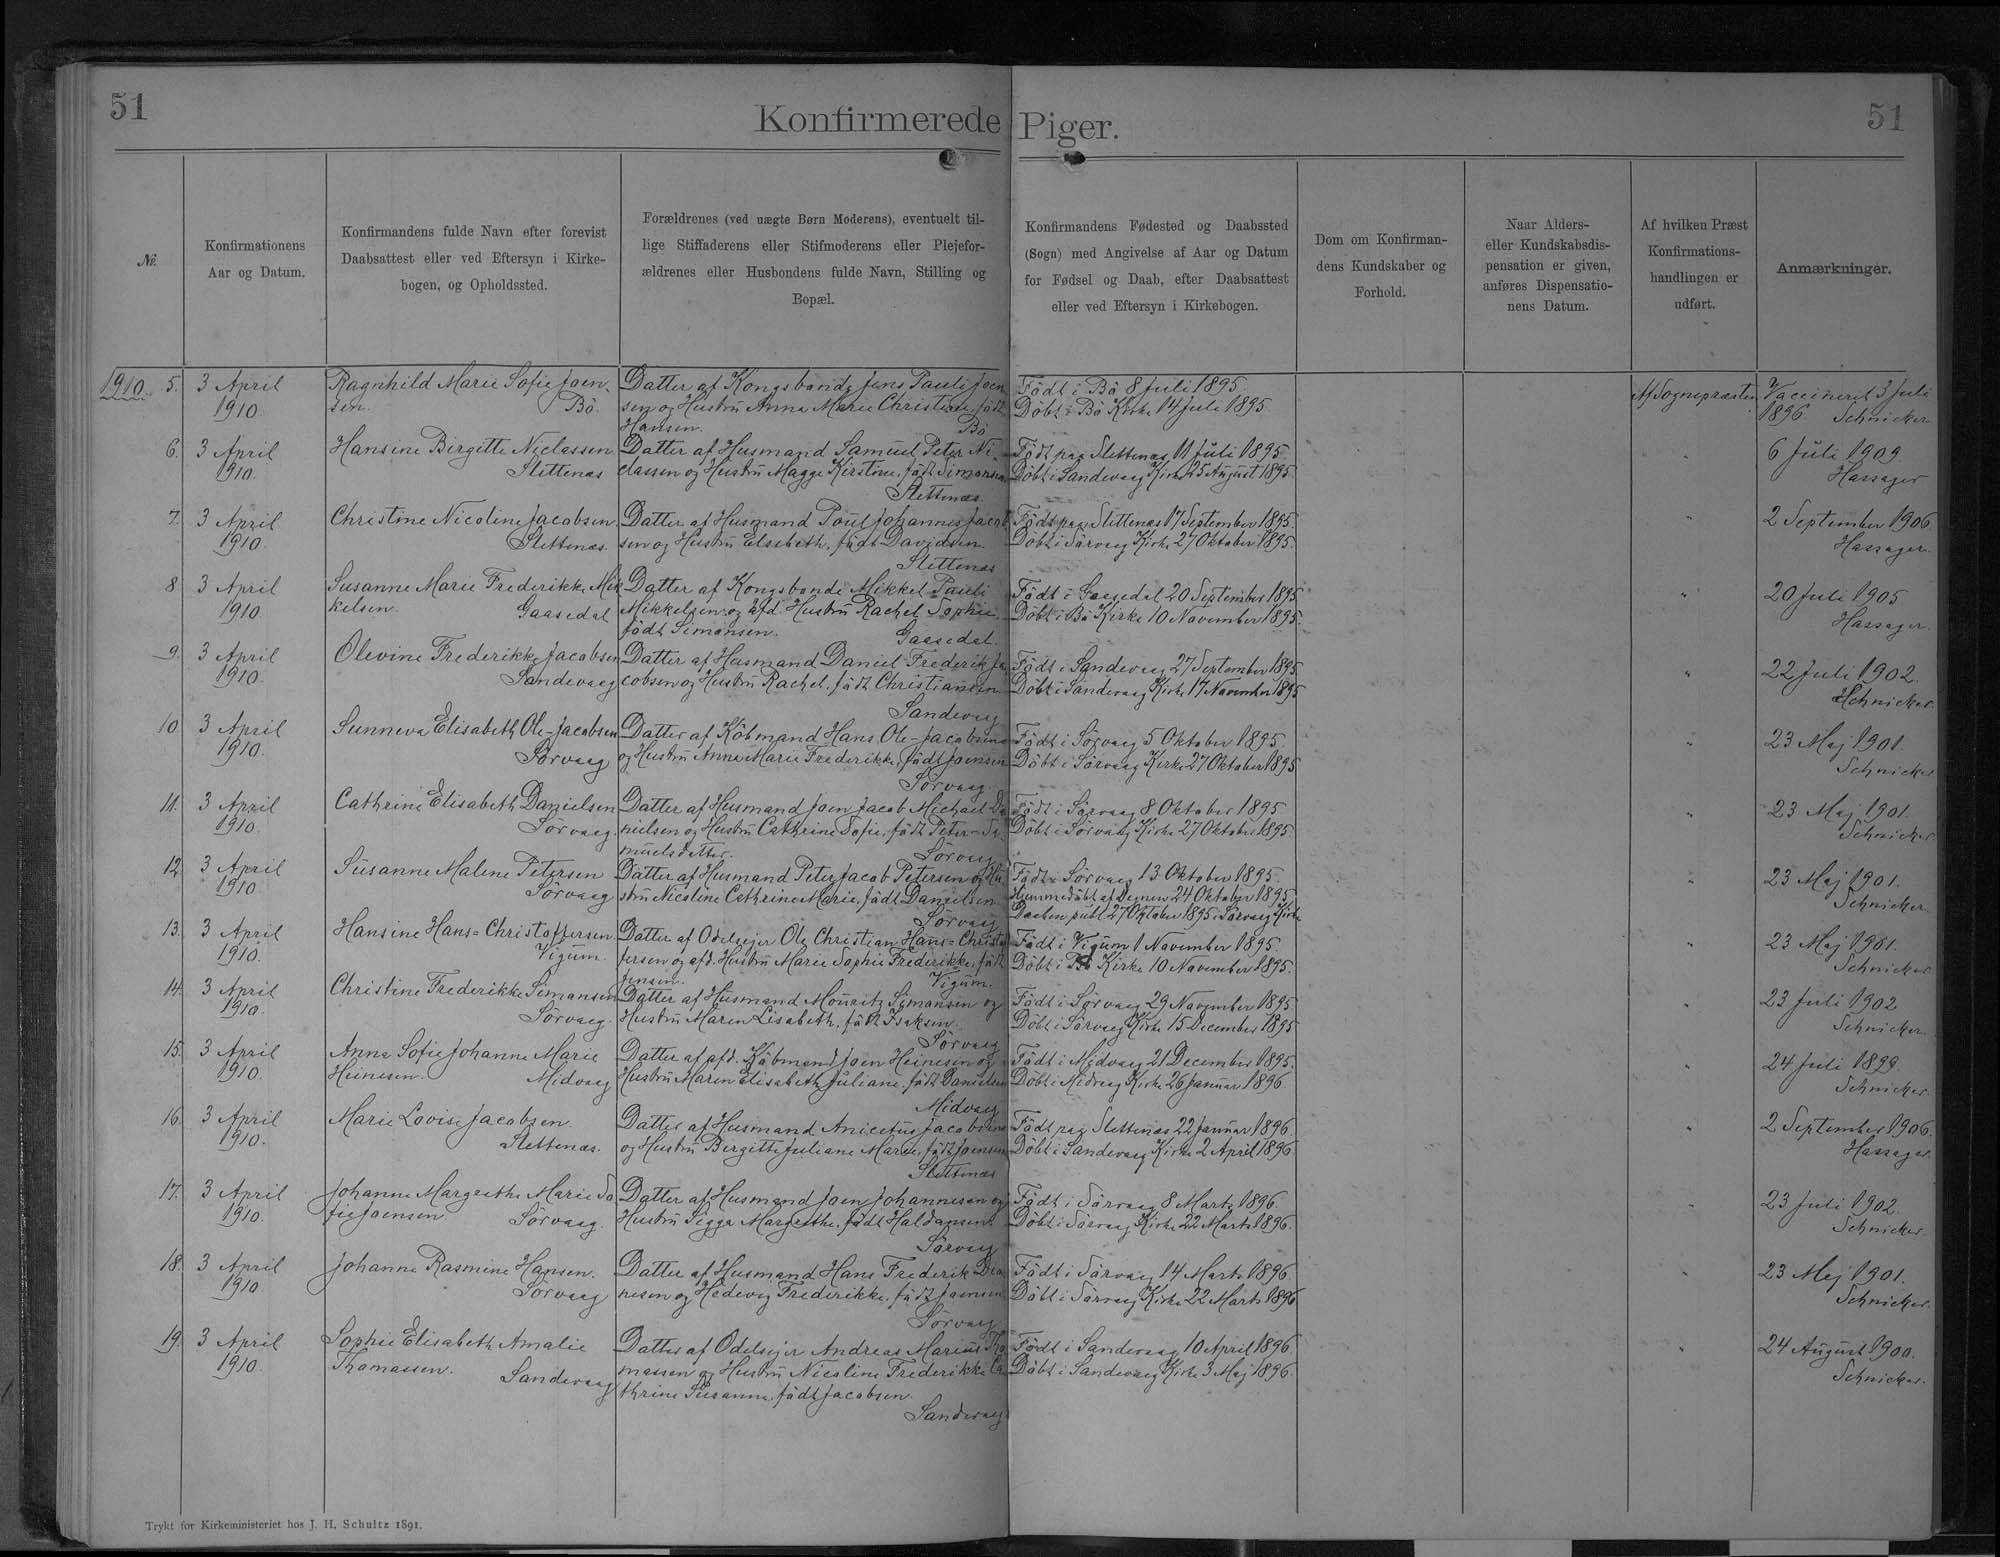 51
Konfirmerede Piger.
51
Nr.
Konfirmationens
Aar og Datum.
Konfirmandens fulde Navn efter forevist
Daabsattest eller ved Eftersyn i Kirke-
bogen, og Opholdssted.
Forældrenes (ved uægte Børn Moderens), eventuelt til-
lige Stiffaderens eller Stifmoderens eller Plejefor-
ældrenes eller Husbondens fulde Navn, Stilling og
Bopæl.
Konfirmandens Fødested og Daabssted
(Sogn) med Angivelse af Aar og Datum
for Fødsel og Daab, efter Daabsattest
eller ved Eftersyn i Kirkebogen.
Dom om Konfirman-
dens Kundskaber og
Forhold.
Naar Alders-
eller Kundskabsdis-
pensation er given,
anføres Dispensatio-
nens Datum.
Af hvilken Præst
Konfirmations-
handlingen er
udført.
Anmærkninger.
1910. 5. 3 April
1910.
Ragnhild Marie Sofie Joen-
sen. Bö.
Datter af Kongsbonde Jens Pauli Joen
sen og Hustru Anna Marie Christine, födt
Hansen. Bö
Födt i Bö 8 Juli 1895.
Döbt i Bö Kirke 14 Juli 1895.
Af Sognepræsten
Vaccineret 3 Juli
1896. Schnicker
6. 3 April
1910.
Hansine Birgitte Niclassen
Slettenæs
Datter af Husmand Samuel Peter Ni-
classen og Hustru Magge Kirstine, födt Simonsen
Slettenæs.
Födt paa Slettenæs 11 Juli 1895.
Döbt i Sandevaag Kirke 25 August 1895.
"
6 Juli 1909.
Hassager
7. 3 April
1910.
Christine Nicoline Jacobsen
Slettenæs.
Datter af Husmand Poul Johannes Jacob
sen og Hustru Elsebeth, födt Davidsen.
Slettenæs
Födt paa Slettenæs 17 September 1895.
Döbt i Sörvaag Kirke 27 Oktober 1895.
"
2 September 1906.
Hassager.
8 3 April
1910.
Susanne Marie Frederikke Mik
kelsen. Gaasedal
Datter af Kongsbonde Mikkel Pauli
Mikkelsen og afd. Hustru Rachel Sophie,
födt Simonsen. Gaasedal.
Födt i Gaasedal 20 September 1895
Döbt i Bö Kirke 10 November 1895.
"
20 Juli 1905
Hassager.
9. 3 April
1910.
Olevine Frederikke Jacobsen
Sandevaag
Datter af Husmand Daniel Frederik Ja
cobsen og Hustru Rachel, födt Christiansen
Sandevaag
Födt i Sandevaag 27 September 1895.
Döbt i Sandevaag Kirke 17 November 1895
"
22 Juli 1902.
Schnicker.
10. 3 April
1910.
Sunneva Elisabeth Ole-Jacobsen
Sörvaag
Datter af Köbmand Hans Ole-Jacobsen
og Hustru Anna Marie Frederikke, födt Joensen
Sörvaag.
Födt i Sörvaag 5 Oktober 1895.
Döbt i Sörvaag Kirke 27 Oktober 1895
"
23 Maj 1901.
Schnicker
11. 3 April
1910.
Cathrine Elisabeth Danielsen
Sörvaag.
Datter af Husmand Joen Jacob Michael Da
nielsen og Hustru Cathrine Sofie, födt Peter-Sa
muelsdatter. Sörvaag
Födt i Sörvaag 8 Oktober 1895
Döbt i Sörvaag Kirke 27 Oktober 1895.
"
23 Maj 1901.
Schnicker
12 3 April
1910.
Susanne Malene Petersen
Sörvaag
Datter af Husmand Peter Jacob Petersen og Hu
stru Nicoline Cathrine Marie, födt Danielsen.
Sörvaag
Födt i Sörvaag 13 Oktober 1895.
Hjemmedöbt af Degnen 24 Oktober 1895.
Daaben publ. 27 Oktober 1895 i Sörvaag Kirke
"
23 Maj 1901.
Schnicker.
13. 3 April
1910.
Hansine Hans=Christoffersen
Vigum.
Datter af Odelsejer Ole Christian Hans=Christof
fersen og afd. Hustru Marie Sophie Frederikke, födt
Jensen. Vigum.
Födt i Vigum 1 November 1895.
Döbt i Bö Kirke 10 November 1895.
"
23 Maj 1901.
Schnicker
14. 3 April
1910.
Christine Frederikke Simonsen
Sörvaag.
Datter af Husmand Mouritz Simonsen og
Hustru Maren Lisabeth, födt Isaksen.
Sörvaag
Födt i Sörvaag 29 November 1895
Döbt i Sörvaag Kirke 15 December 1895
"
23 Juli 1902
Schnicker.
15. 3 April
1910.
Anna Sofie Johanne Marie
Heinesen. Midvaag
Datter af afd. Köbmand Joen Heinesen og
Hustru Maren Elisabeth Juliane, födt Danielsen
Midvaag
Födt i Midvaag 21 December 1895.
Döbt i Midvaag Kirke 26 Januar 1896.
"
24 Juli 1899.
Schnicker.
16. 3 April
1910.
Marie Lovise Jacobsen.
Slettenæs.
Datter af Husmand Anicetus Jacobsen
og Hustru Birgitte Juliane Marie, födt Joensen
Slettenæs
Födt paa Slettenæs 22 Januar 1896.
Döbt i Sandevaag Kirke 2 April 1896
"
2 September 1906.
Hassager
17. 3 April
1910.
Johanne Margrethe Marie So
fie Joensen. Sörvaag.
Datter af Husmand Joen Johannesen og
Hustru Sigga Margrethe, födt Haldansen.
Sörvaag
Födt i Sörvaag 8 Marts 1896.
Döbt i Sörvaag Kirke 22 Marts 1896.
"
23 Juli 1902.
Schnicker.
18. 3 April
1910.
Johanne Rasmine Hansen.
Sörvaag
Datter af Husmand Hans Frederik
nesen og Hedevig Frederikke, födt Joensen
Sörvaag
Födt i Sörvaag 14 Marts 1896.
Döbt i Sörvaag Kirke 22 Marts 1896
"
23 Maj 1901.
Schnicker.
19. 3 April
1910.
Sophie Elisabeth Amalie
Thomassen. Sandevaag
Datter af Odelsejer Andreas Marius Tho
massen og Hustru Nicoline Frederikke Ca
thrine Susanna, födt Jacobsen.
Sandevaag
Födt i Sandevaag 10 April 1896.
Döbt i Sandevaag Kirke 3 Maj 1896.
"
24 August 1900.
Schnicker.
Trykt for Kirkeministeriet hos J. H. Schultz 1891.